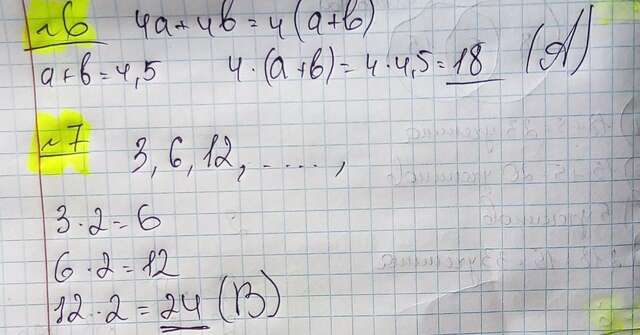 №6 4a+4b=4(a+b)
a+b=4,5 4·(a+b)=4·4,5=18 (A)
№7 3, 6, 12, .....,
3·2=6
6·2=12
12·2=24 (B)